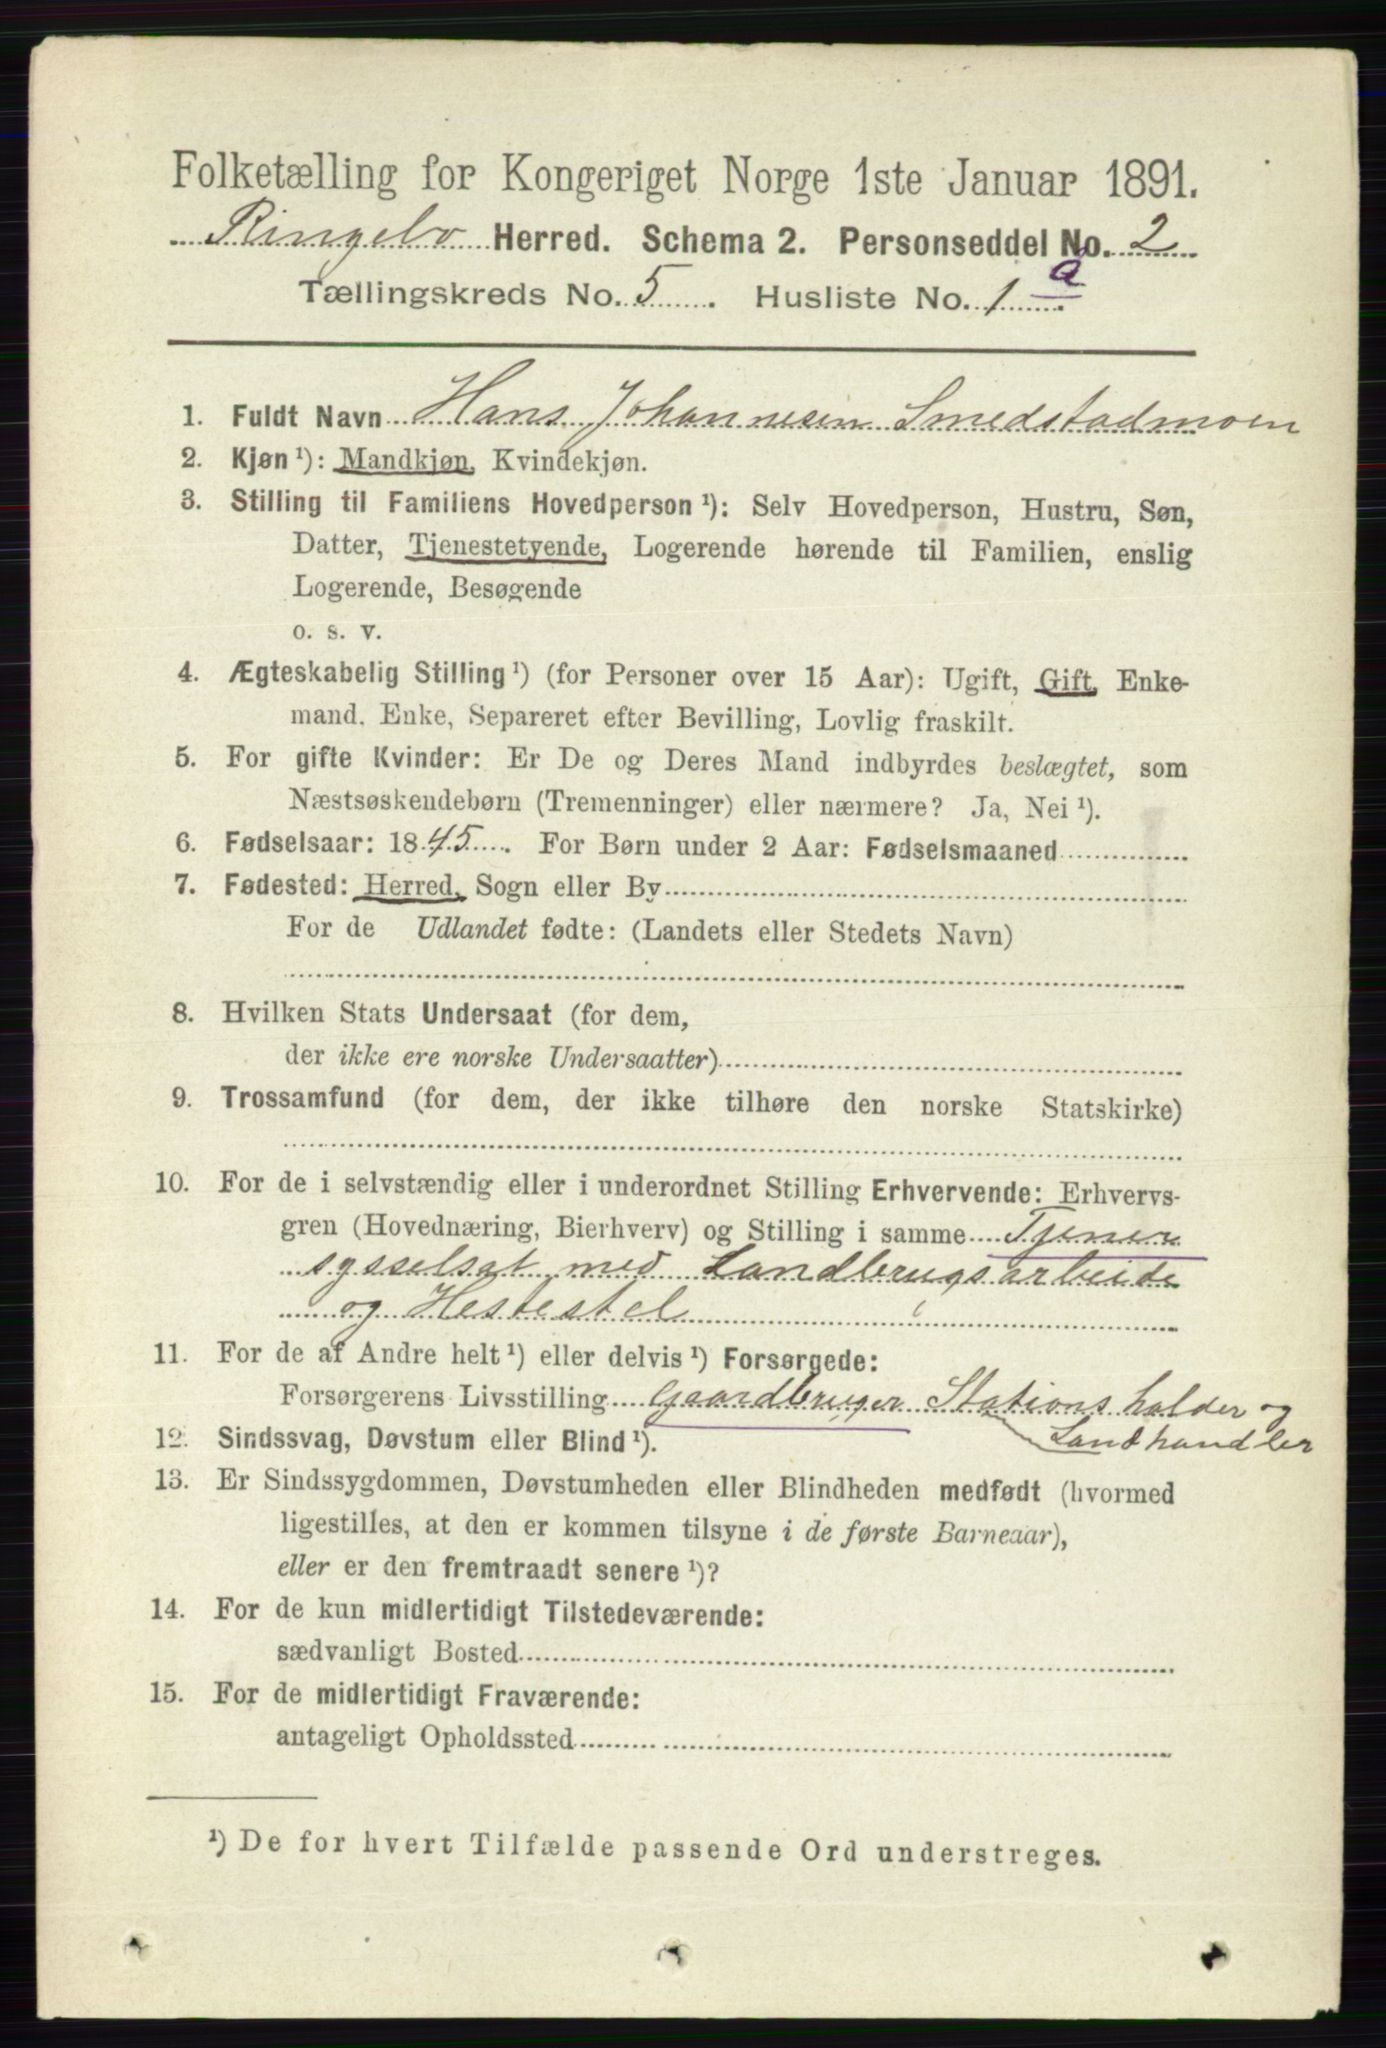 Folketælling for Kongeriget Norge 1ste Januar 1891.
Ringebo Herred. Schema 2. Personseddel No. 2
Tællingskreds No. 5. Husliste No. 1 a.
1. Fuldt Navn Hans Johannesen Smedstadmoen
2. Kjøn ¹): Mandkjøn, Kvindekjøn.
3. Stilling til Familiens Hovedperson ¹): Selv Hovedperson, Hustru, Søn,
Datter, Tjenestetyende, Logerende hørende til Familien, enslig
Logerende, Besøgende
o. s. v.
4. Ægteskabelig Stilling ¹) (for Personer over 15 Aar): Ugift, Gift, Enke-
mand, Enke, Separeret efter Bevilling, Lovlig fraskilt.
5. For gifte Kvinder: Er De og Deres Mand indbyrdes beslægtet, som
Næstsøskendebørn (Tremenninger) eller nærmere? Ja, Nei ¹).
6. Fødselsaar: 1845. For Børn under 2 Aar: Fødselsmaaned
7. Fødested: Herred, Sogn eller By
For de Udlandet fødte: (Landets eller Stedets Navn)
8. Hvilken Stats Undersaat (for dem,
der ikke ere norske Undersaatter)
9. Trossamfund (for dem, der ikke tilhøre den norske Statskirke)
10. For de i selvstændig eller i underordnet Stilling Erhvervende: Erhvervs-
gren (Hovednæring, Bierhverv) og Stilling i samme Tjener
sysselsat med Landbrugsarbeide
og Hestestel
11. For de af Andre helt ¹) eller delvis ¹) Forsørgede:
Forsørgerens Livsstilling Gaardbruger Stationsholder og
Landhandler
12. Sindssvag, Døvstum eller Blind ¹).
13. Er Sindssygdommen, Døvstumheden eller Blindheden medfødt (hvormed
ligestilles, at den er kommen tilsyne i de første Barneaar),
eller er den fremtraadt senere ¹)?
14. For de kun midlertidigt Tilstedeværende:
sædvanligt Bosted
15. For de midlertidigt Fraværende:
antageligt Opholdssted
¹) De for hvert Tilfælde passende Ord understreges.